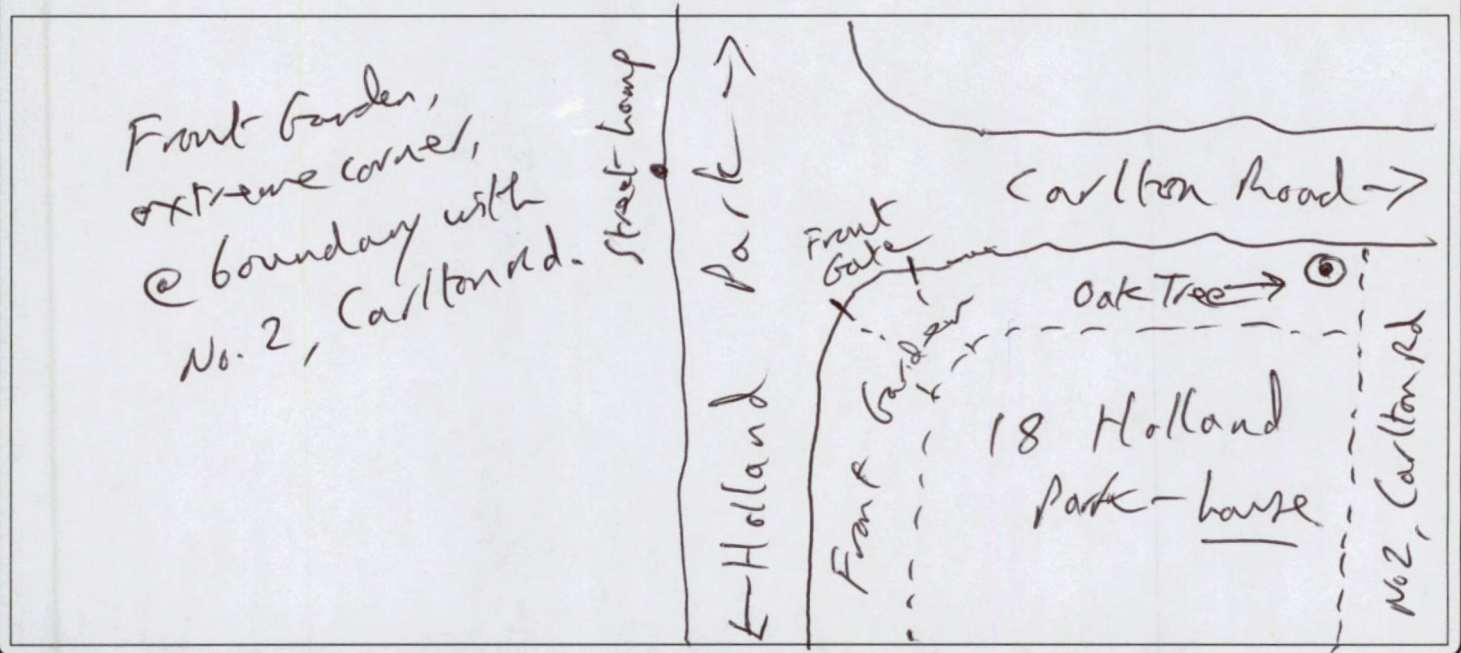 Front Garden,
extreme corner,
@ boundary with
No. 2, Carlton Rd.
Street-lamp
← Holland Park →
Carlton Road →
Front
Gate
Oak Tree →
Front Garden
18 Holland
Park - house
No 2, Carlton Rd